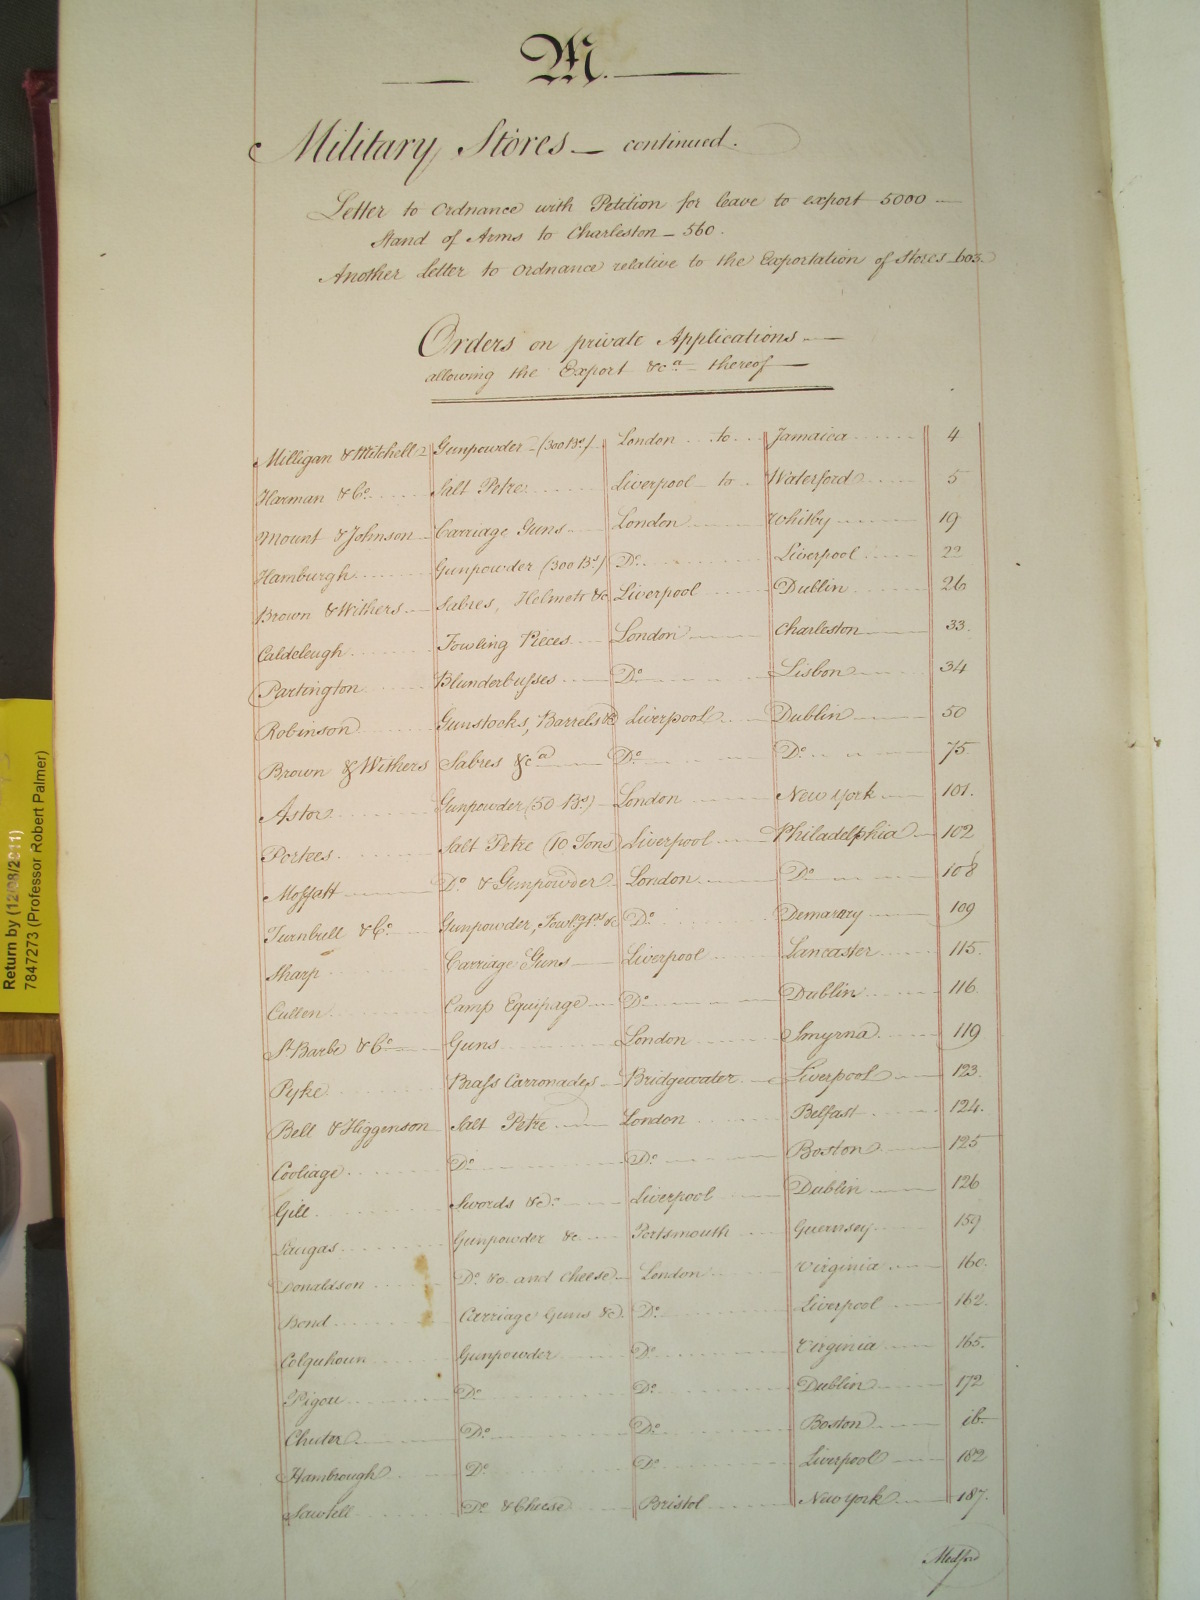 M.
Military Stores — continued.
Letter to Ordnance with Petition for leave to export 5000 —
Stand of Arms to Charleston — 560.
Another Letter to Ordnance relative to the Exportation of Stores — 603.
Orders on private Applications —
allowing the Export &c.a — thereof —
Milligan & Mitchell Gunpowder — (300 Bs.) London to Jamaica 4
Harman & Co. Salt Petre Liverpool to Waterford 5
Mount & Johnson Carriage Guns London Whitby 19
Hamburgh Gunpowder (300 Bs.) Do. Liverpool 22
Brown & Withers Sabres, Helmets &c Liverpool Dublin 26
Caldeleugh Fowling Pieces London Charleston 33.
Partington Blunderbusses Do. Lisbon 34
Robinson Gunstocks, Barrels &c Liverpool Dublin 50
Brown & Withers Sabres &c.a Do. Do. 75
Astor Gunpowder (50 Bs.) London New York 101.
Portees. Salt Petre (10 Tons) Liverpool Philadelphia 102
Moffatt Do. & Gunpowder London Do. 108
Turnbull & Co. Gunpowder, Fowlg. Ps. &c Do. Demarary 109
Sharp Carriage Guns Liverpool Lancaster 115.
Cullen Camp Equipage Do. Dublin 116.
St. Barbe & Co. Guns London Smyrna 119
Pyke Brass Carronades Bridgewater Liverpool 123.
Bell & Higgenson Salt Petre London Belfast 124.
Cooliage Do. Do. Boston 125
Gill Swords &c. Liverpool Dublin 126
Gunpowder &c Portsmouth Guernsey 159
Donaldson Do. &c. and Cheese London Virginia 160.
Bond Carriage Guns &c. Do. Liverpool 162.
Colquhoun Gunpowder Do. Virginia 165.
Pigou Do. Do. Dublin 172
Chuter Do. Do. Boston ib.
Hambrough Do. Do. Liverpool 182
Sawtell Do. & Cheese Bristol New York 187.
Medford
Return by (12/08/2011)
7847273 (Professor Robert Palmer)